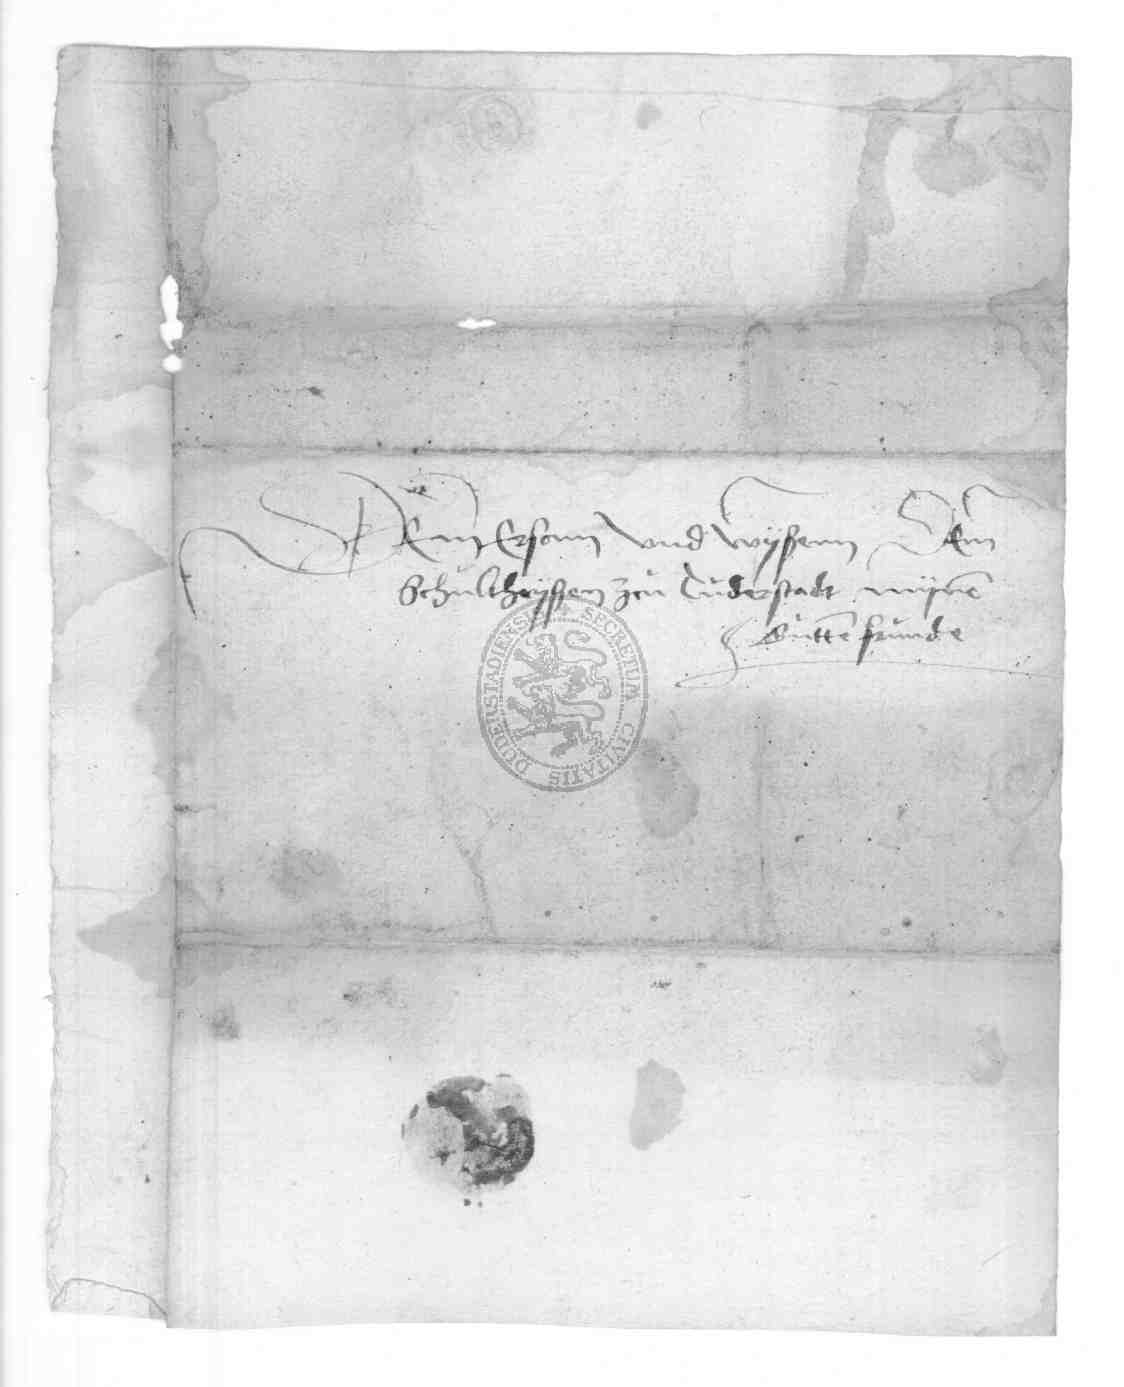 Dem Ersam und wyßenn Dem
Schultheyßen zcu Duderstadt myne
Gutte frunde
SECRETUM CIVITATIS DUDERSTADIENSIS